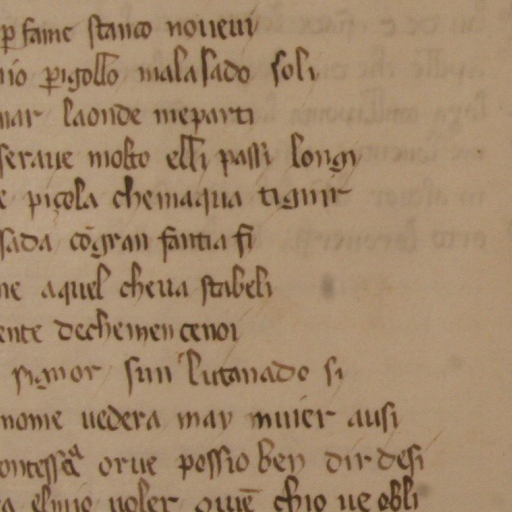 ꝑ fame stanco noueui
nio ꝑigollo malasado soli
mar laonde meparti
seraue molto elli passi longi
e piçola chemaqua tignir
sada cōgran fantia fi
ne aquel cheua stabeli
ente dechemen cenoi
signor sun lutanado si
nome uedera may muier ausi
ontessa orue possio ben dir desi
elmio uoler ouē chio ue obli